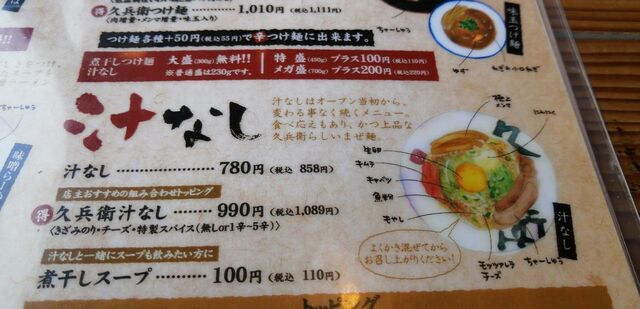 得 久兵衛つけ麺 1,010円(税込1,111円)
(肉増量・メンマ増量・味玉入り)
ちゃーしゅう
味玉つけ麺
ゆず
つけ麺各種+50円(税込55円)で辛つけ麺に出来ます。
煮干しつけ麺
汁なし
大盛(300g)無料!!
※普通盛は230gです。
特盛(450g)プラス100円(税込110円)
メガ盛(700g)プラス200円(税込220円)
ちゃーしゅう
汁なし
汁なしはオープン当初から、
変わる事なく続くメニュー。
食べ応えもあり、かつ上品な
久兵衛らしいまぜ麺。
汁なし 780円(税込 858円)
店主おすすめの組み合わせトッピング
得 久兵衛汁なし 990円(税込1,089円)
〈きざみのり・チーズ・特製スパイス(無しor1辛~5辛)〉
汁なしと一緒にスープも飲みたい方に
煮干しスープ 100円(税込 110円)
トッピング
極上
メンマ
にんにく
生卵
キムチ
キャベツ
魚粉
もやし
モッツァレラ
チーズ
ちゃーしゅう
よくかき混ぜてから
お召し上がりください!
汁なし